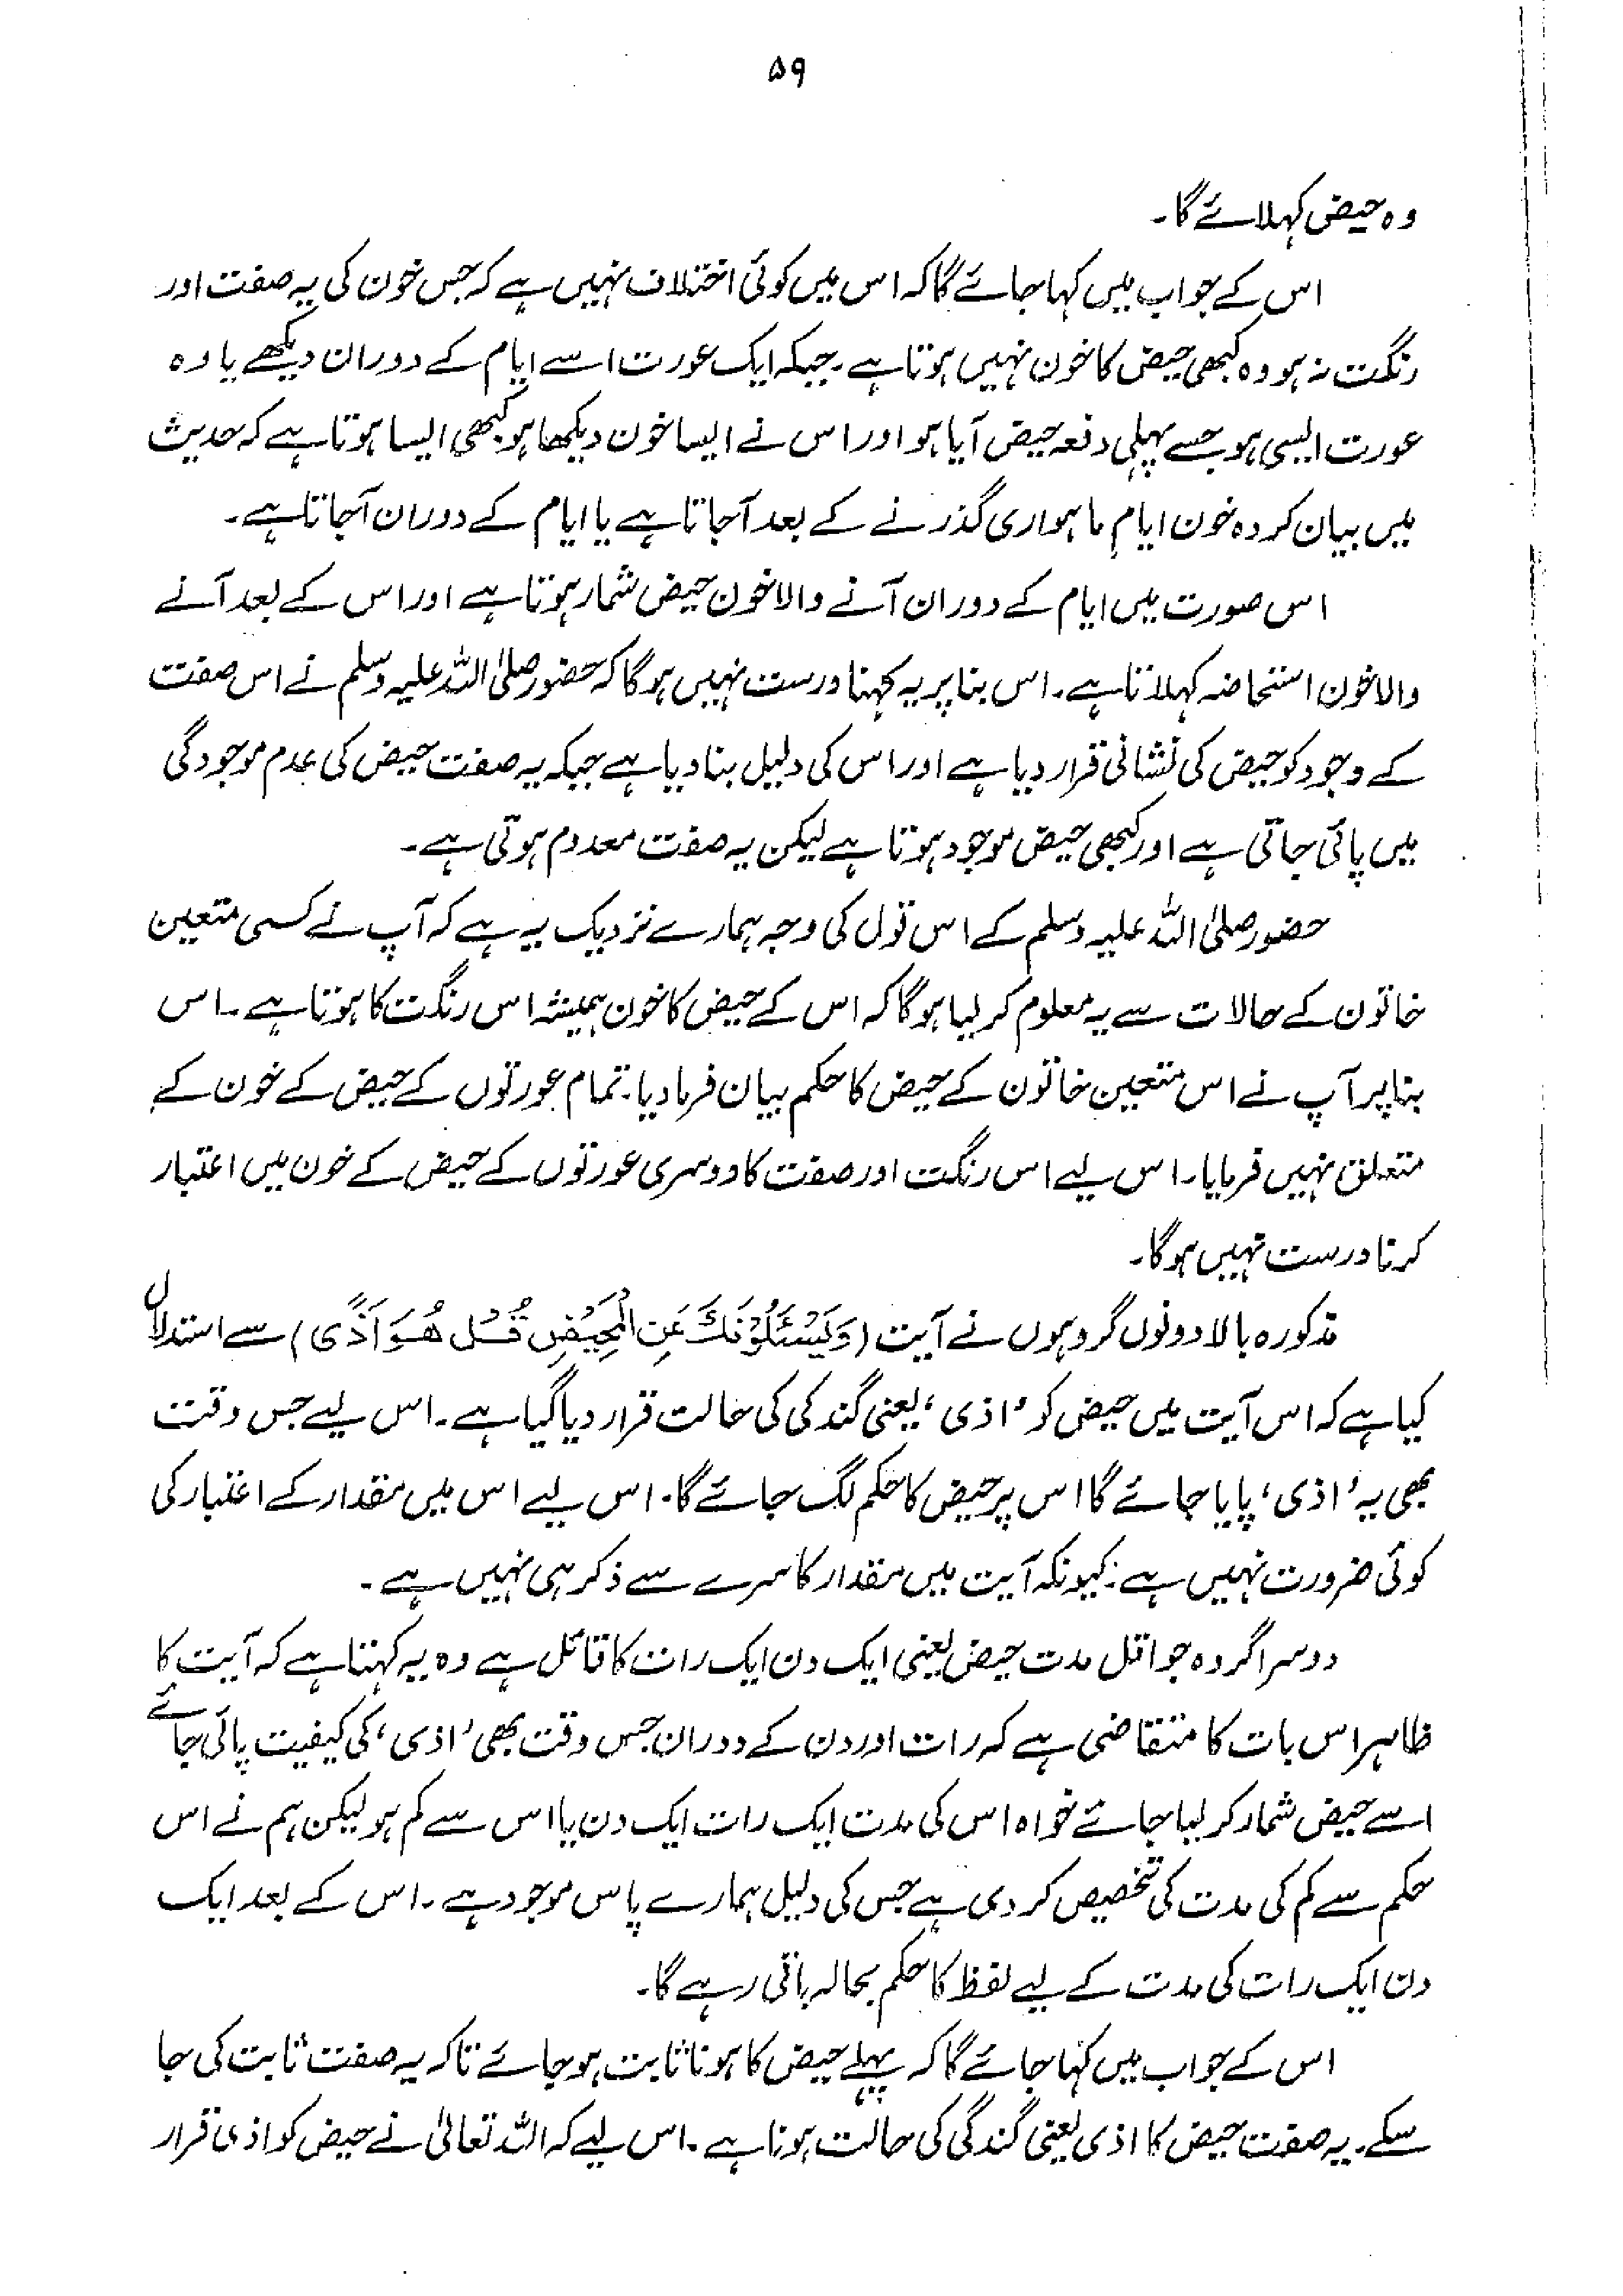 ۵۹
وہ حیض کہلائے گا۔
اس کے جواب میں کہا جائے گا کہ اس میں کوئی اختلاف نہیں ہے کہ جس خون کی یہ صفت اور
رنگت نہ ہو وہ کبھی حیض کا خون نہیں ہوتا ہے۔ جبکہ ایک عورت اسے ایام کے دوران دیکھے یا وہ
عورت ایسی ہو جسے پہلی دفعہ حیض آیا ہو اور اس نے ایسا خون دیکھا ہو کبھی ایسا ہوتا ہے کہ حدیث
میں بیان کردہ خون ایامِ ماہواری گذرنے کے بعد آجاتا ہے یا ایام کے دوران آجاتا ہے۔
اس صورت میں ایام کے دوران آنے والا خون حیض شمار ہوتا ہے اور اس کے بعد آنے
والا خون استحاضہ کہلاتا ہے۔ اس بنا پر یہ کہنا درست نہیں ہو گا کہ حضور صلی اللہ علیہ وسلم نے اس صفت
کے وجود کو حیض کی نشانی قرار دیا ہے اور اس کی دلیل بنا دیا ہے جبکہ یہ صفت حیض کی عدم موجودگی
میں پائی جاتی ہے اور کبھی حیض موجود ہوتا ہے لیکن یہ صفت معدوم ہوتی ہے۔
حضور صلی اللہ علیہ وسلم کے اس قول کی وجہ ہمارے نزدیک یہ ہے کہ آپ نے کسی متعین
خاتون کے حالات سے یہ معلوم کر لیا ہو گا کہ اس کے حیض کا خون ہمیشہ اس رنگت کا ہوتا ہے۔ اس
بنا پر آپ نے اس متعین خاتون کے حیض کا حکم بیان فرما دیا۔ تمام عورتوں کے حیض کے خون کے
متعلق نہیں فرمایا۔ اس لیے اس رنگت اور صفت کا دوسری عورتوں کے حیض کے خون میں اعتبار
کرنا درست نہیں ہو گا۔
مذکورہ بالا دونوں گروہوں نے آیت (وَیَسْئَلُوْنَکَ عَنِ الْمَحِیْضِ قُلْ ھُوَ اَذًی) سے استدلال
کیا ہے کہ اس آیت میں حیض کو ’اذی‘ یعنی گندگی کی حالت قرار دیا گیا ہے۔ اس لیے جس وقت
بھی یہ ’اذی‘ پایا جائے گا اس پر حیض کا حکم لگ جائے گا۔ اس لیے اس میں مقدار کے اعتبار کی
کوئی ضرورت نہیں ہے۔ کیونکہ آیت میں مقدار کا سرے سے ذکر ہی نہیں ہے۔
دوسرا گروہ جو اقل مدت حیض یعنی ایک دن ایک رات کا قائل ہے وہ یہ کہتا ہے کہ آیت کا
ظاہر اس بات کا متقاضی ہے کہ رات اور دن کے دوران جس وقت بھی ’اذی‘ کی کیفیت پائی جائے
اسے حیض شمار کر لیا جائے خواہ اس کی مدت ایک رات ایک دن یا اس سے کم ہو لیکن ہم نے اس
حکم سے کم کی مدت کی تخصیص کر دی ہے جس کی دلیل ہمارے پاس موجود ہے۔ اس کے بعد ایک
دن ایک رات کی مدت کے لیے لفظ کا حکم بحالہ باقی رہے گا۔
اس کے جواب میں کہا جائے گا کہ پہلے حیض کا ہونا ثابت ہو جائے تاکہ یہ صفت ثابت کی جا
سکے۔ یہ صفت حیض کا اذی یعنی گندگی کی حالت ہونا ہے۔ اس لیے کہ اللہ تعالیٰ نے حیض کو اذی قرار